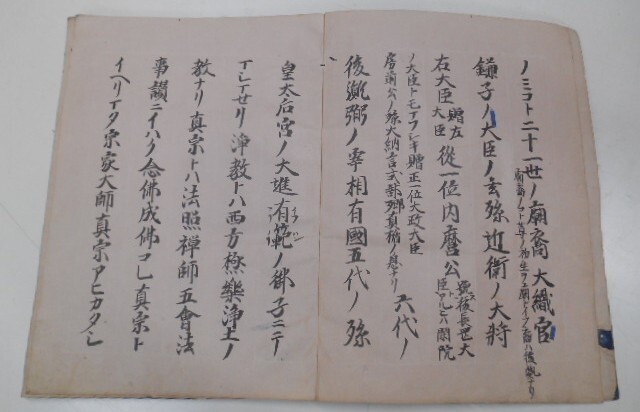 ノミコト二十一世ノ廟裔 大織官
鎌子ノ大臣ノ玄孫近衛ノ大将
右大臣 贈左大臣 從一位内麿公
ノ大臣トモ 贈正一位大政大臣
房前公ノ孫大納言式部卿真楯ノ息ナリ 六代ノ
後胤弼ノ宰相有國五代ノ孫
皇太后宮ノ大進有範ノ御子ニテ
マシマセリ 浄教トハ西方極樂浄土ノ
教ナリ真宗トハ法照禅師五會法
事讃ニイハク念佛成佛コレ真宗ト
イヘリマタ宗家大師真宗アヒカタシ